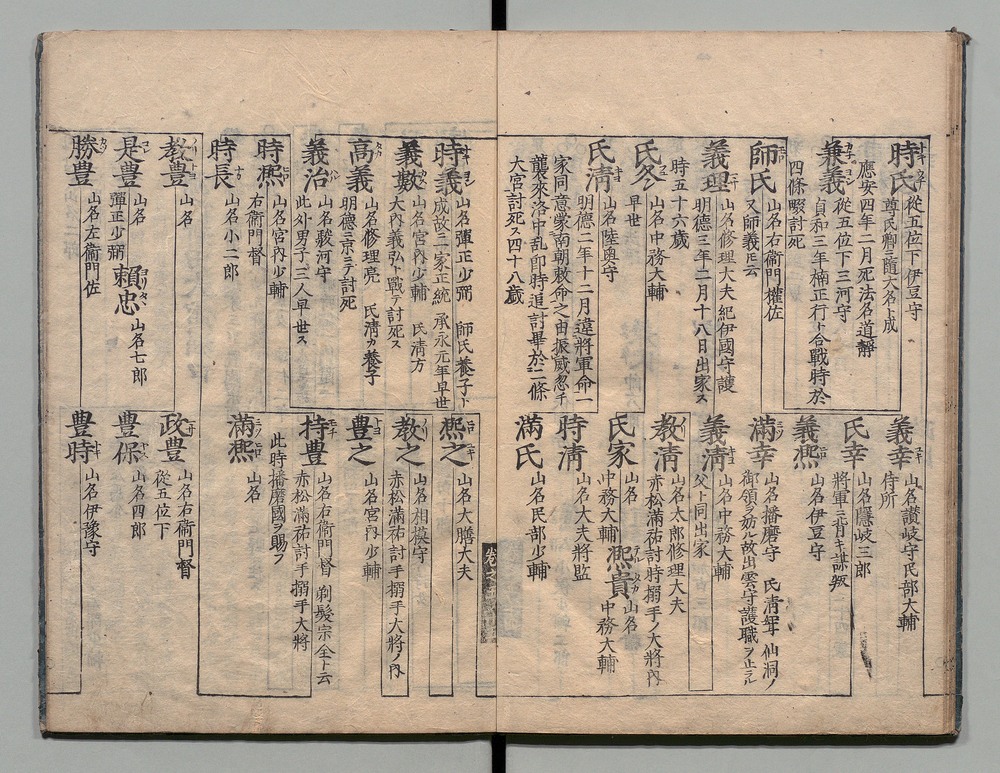 時氏
從五位下伊豆守
尊氏卿ニ隨大名ト成
應安四年二月死法名道靜
兼義
從五位下三河守
貞和三年楠正行ト合戰時於
四條畷討死
師氏
山名右衛門權佐
又師義トモ云
義理
山名修理大夫紀伊國守護
明德三年二月十八日出家ス
時五十六歲
氏冬
山名中務大輔
早世
氏淸
山名陸奥守
明德二年十二月違將軍命一
家同意蒙南朝敕命之由振威忽千
襲來洛中乱卽時追討畢於二條
大宮討死ス四十八歲
義幸
山名讃岐守民部大輔
侍所
氏幸
山名隱岐三郎
將軍ニ背キ謀叛
義熙
山名伊豆守
滿幸
山名播磨守 氏淸聟 仙洞ノ
御領ヲ妨ル故出雲守護職ヲ止ラル
義淸
山名中務大輔
父ト同出家
教淸
山名太郎修理大夫
赤松滿祐討時搦手ノ大將內
氏家
山名
中務大輔
熙貴
山名
中務大輔
時淸
山名大夫將監
滿氏
山名民部少輔
時義
山名彈正少弼 師氏養子ト
成故二家正統 承永元年早世
義數
山名宮內少輔 氏淸方
大內義弘ト戰テ討死ス
高義
山名修理亮 氏淸カ養子
明德三京ニテ討死
義治
山名駿河守
此外男子三人早世ス
時熙
山名宮內少輔
右衛門督
時長
山名小二郎
教豊
山名
是豊
山名
彈正少弼
賴忠
山名七郎
勝豊
山名左衛門佐
熙之
山名大膳大夫
教之
山名相模守
赤松滿祐討手搦手大將ノ內
豊之
山名宮內少輔
持豊
山名右衛門督 剃髮宗全ト云
赤松滿祐討手搦手大將
此時播磨國ヲ賜フ
滿熙
山名
政豊
山名右衛門督
從五位下
豊保
山名四郎
豊時
山名伊豫守